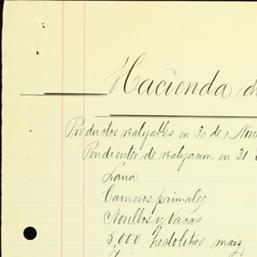 Hacienda d
Productos realizables en 30 de Nov
Pendientes de realizacion en 31
Lana
Carneros primales
Novillos y Vacas
5,000 hedolitros maiz